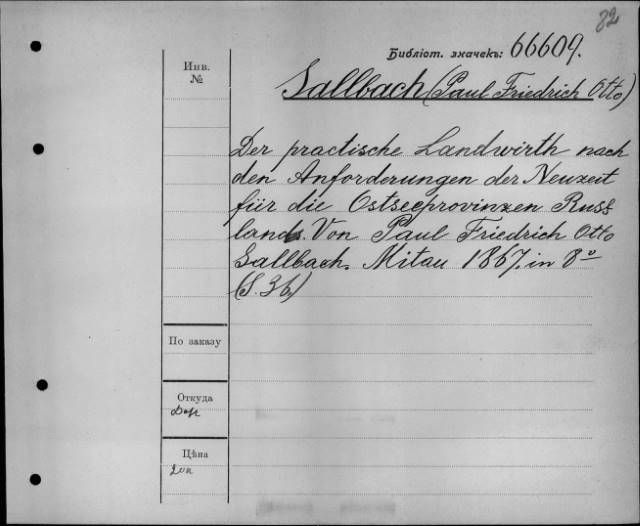 82
Библіот. значекъ: 66609.
Инв.
№
Sallbach (Paul Friedrich Otto)
Der practische Landwirth nach
den Anforderungen der Neuzeit
für die Ostseeprovinzen Russ
lands. Von Paul Friedrich Otto
Sallbach. Mitau 1867. in 8º
(S. 36)
По заказу
Откуда
Цѣна